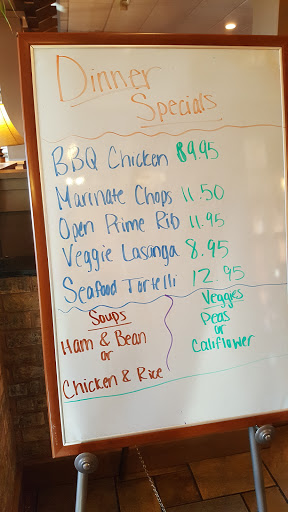 Dinner
Specials
BBQ Chicken 89.95
Marinate Chops 11.50
Open Prime Rib 11.95
Veggie Lasanga 8.95
Seafood Tortelli 12.95
Soups
Ham & Bean
or
Chicken & Rice
Veggies
Peas
or
Califlower